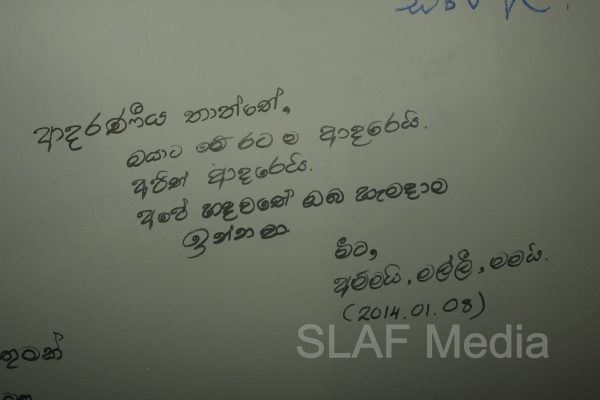 ආදරණීය තාත්තේ,
ඔයාට මේ රට ම ආදරෙයි.
අපිත් ආදරෙයි.
අපේ හදවතේ ඔබ හැමදාම
ඉන්නවා
මීට,
අම්මයි, මල්ලී, මමයි.
(2014.01.08)
SLAF Media